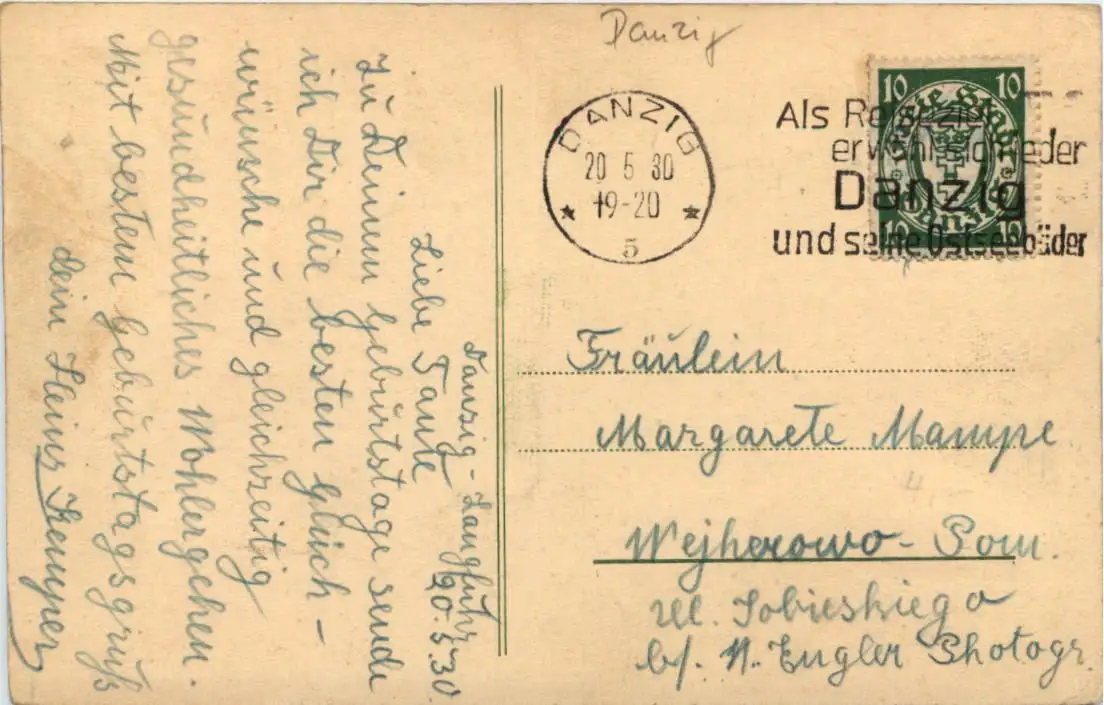 Danzig
DANZIG
20 5 30
19-20
5
Als Reiseziel
erwählt sich jeder
Danzig
und seine Ostseebäder
10 10
Freie Stadt
Danzig
10 10
Danzig-Langfuhr
20.5.30
Liebe Tante
Zu Deinem Geburtstage sende
ich Dir die besten Glück-
wünsche und gleichzeitig
gesundheitliches Wohlergehen.
Mit bestem Geburtstagsgruß
Dein Heinz Kemper
Fräulein
Margarete Mampe
Wejherowo-Pom.
ul. Sobieskiego
bf. N. Engler Photogr.